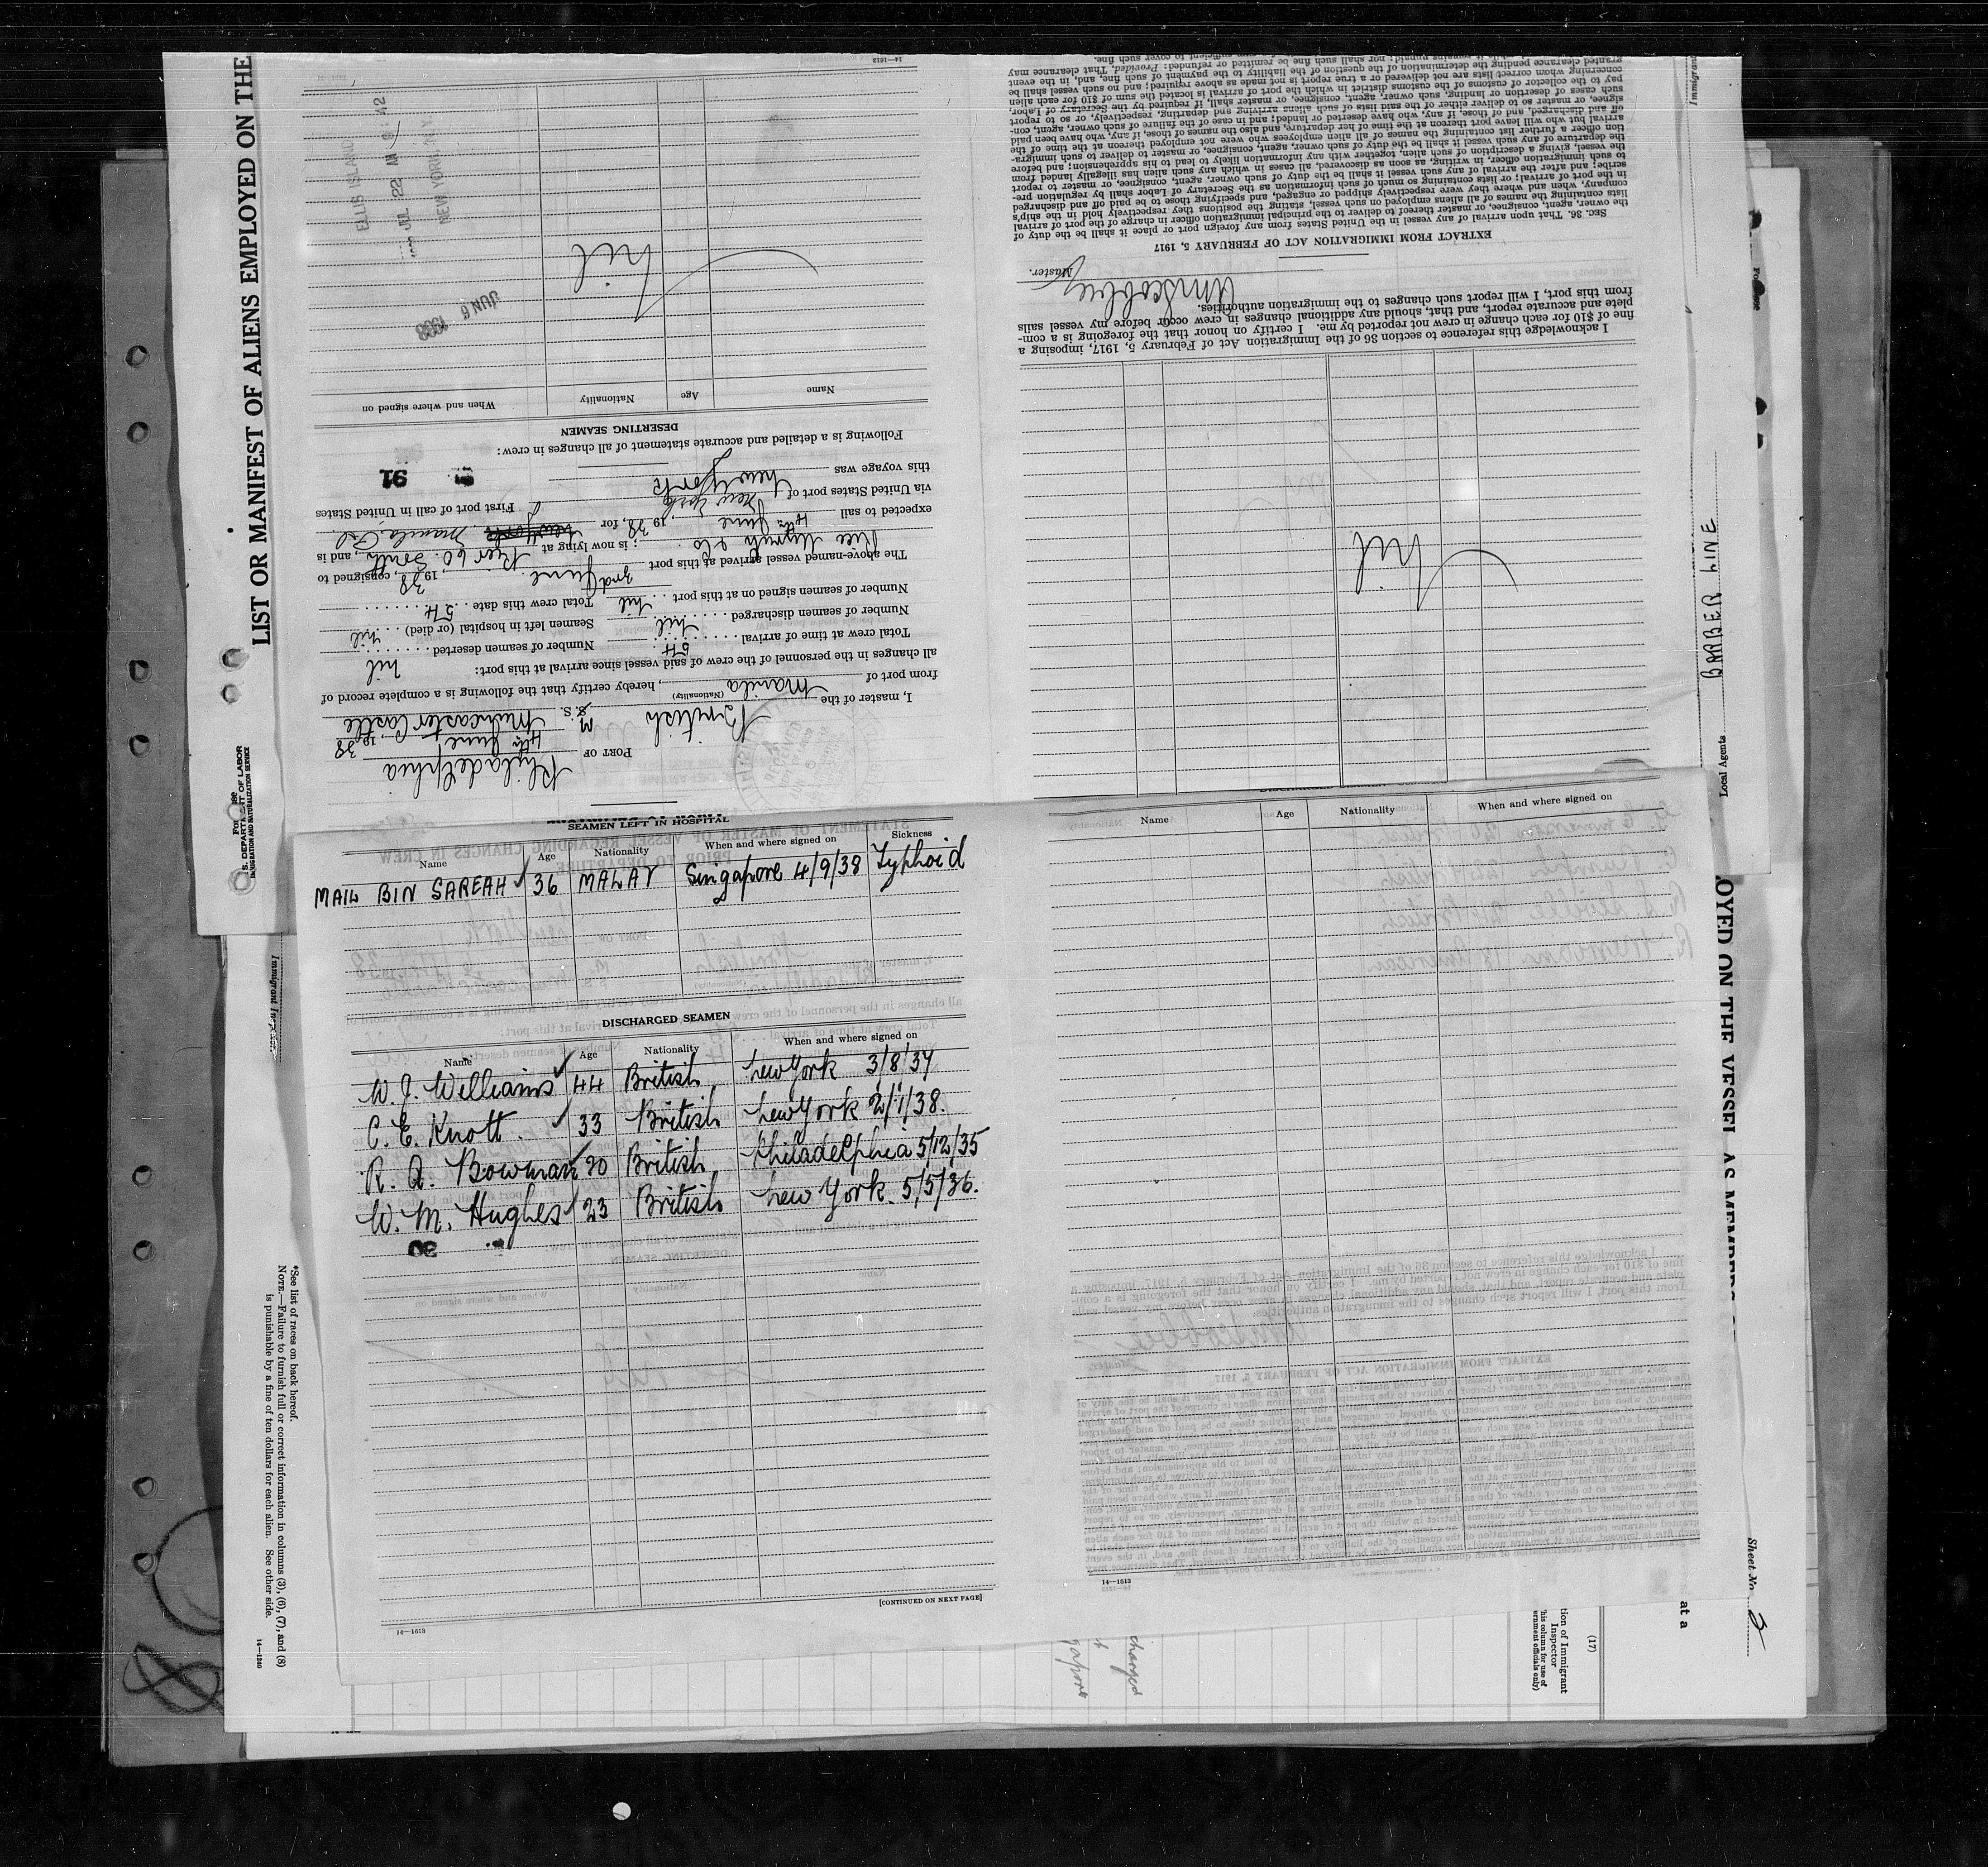 LIST OR MANIFEST OF ALIENS EMPLOYED ON THE
U.S. DEPARTMENT OF LABOR
IMMIGRATION AND NATURALIZATION SERVICE
Philadelphia
PORT OF 4th June, 1938
British M S. S. Muncaster Castle
I, master of the
(Nationality)
from port of Manila, hereby certify that the following is a complete record of
all changes in the personnel of the crew of said vessel since arrival at this port:
Total crew at time of arrival 54. Number of seamen deserted nil
Number of seamen discharged nil. Seamen left in hospital (or died) nil
Number of seamen signed on at this port nil Total crew this date 54
The above-named vessel arrived at this port 3rd June, 1938, consigned to
; is now lying at Pier 60 South, and is
expected to sail 4th June, 1938, for Manila
via United States port of New York First port of call in United States
this voyage was New York
91
Following is a detailed and accurate statement of all changes in crew:
DESERTING SEAMEN
Name Age Nationality When and where signed on
nil
JUN 6 1938
ELLIS ISLAND
JUL 22
NEW YORK, N.Y.
14—1613
nil
I acknowledge this reference to section 36 of the Immigration Act of February 5, 1917, imposing a
fine of $10 for each change in crew not reported by me. I certify on honor that the foregoing is a com-
plete and accurate report, and that, should any additional changes in crew occur before my vessel sails
from this port, I will report such changes to the immigration authorities.
Master.
EXTRACT FROM IMMIGRATION ACT OF FEBRUARY 5, 1917
SEC. 36. That upon arrival of any vessel in the United States from any foreign port or place it shall be the duty of
the owner, agent, consignee, or master thereof to deliver to the principal immigration officer in charge of the port of arrival
lists containing the names of all aliens employed on such vessel, stating the positions they respectively hold in the ship's
company, when and where they were respectively shipped or engaged, and specifying those to be paid off and discharged
in the port of arrival; or lists containing so much of such information as the Secretary of Labor shall by regulation pre-
scribe; and after the arrival of any such vessel it shall be the duty of such owner, agent, consignee, or master to report
to such immigration officer, in writing, as soon as discovered, all cases in which any such alien has illegally landed from
the vessel, giving a description of such alien, together with any information likely to lead to his apprehension; and before
the departure of any such vessel it shall be the duty of such owner, agent, consignee, or master to deliver to such immigra-
tion officer a further list containing the names of all alien employees who were not employed thereon at the time of the
arrival but who will leave port thereon at the time of her departure, and also the names of those, if any, who have been paid
off and discharged, and of those, if any, who have deserted or landed; and in case of the failure of such owner, agent, con-
signee, or master so to deliver either of the said lists of such aliens arriving and departing, respectively, or so to report
such cases of desertion or landing, such owner, agent, consignee, or master, shall, if required by the Secretary of Labor,
pay to the collector of customs of the customs district in which the port of arrival is located the sum of $10 for each alien
concerning whom correct lists are not delivered or a true report is not made as above required; and no such vessel shall be
granted clearance pending the determination of the question of the liability to the payment of such fine, and, in the event
such fine is imposed, while it remains unpaid; nor shall such fine be remitted or refunded: Provided, That clearance may
Local Agents BARBER LINE
SEAMEN LEFT IN HOSPITAL
Name Age Nationality When and where signed on Sickness
MAIL BIN SAREAH 36 MALAY Singapore 4/9/38 Typhoid
DISCHARGED SEAMEN
Name Age Nationality When and where signed on
W. J. Williams 44 British New York 3/8/37
C. E. Knott. 33 British New York 2/1/38.
R. A. Bowman 30 British Philadelphia 5/12/35
W. M. Hughes 23 British New York. 5/5/36.
30
[CONTINUED ON NEXT PAGE]
14—1613
Name Age Nationality When and where signed on
14—1613
OYED ON THE VESSEL AS MEMBERS
Sheet No. 3
at a
Immigrant Inspector.
*See list of races on back hereof.
NOTE.—Failure to furnish full or correct information in columns (3), (6), (7), and (8)
is punishable by a fine of ten dollars for each alien. See other side.
14—1240
(17)
tion of Immigrant
Inspector
his column for use of
ernment officials only)